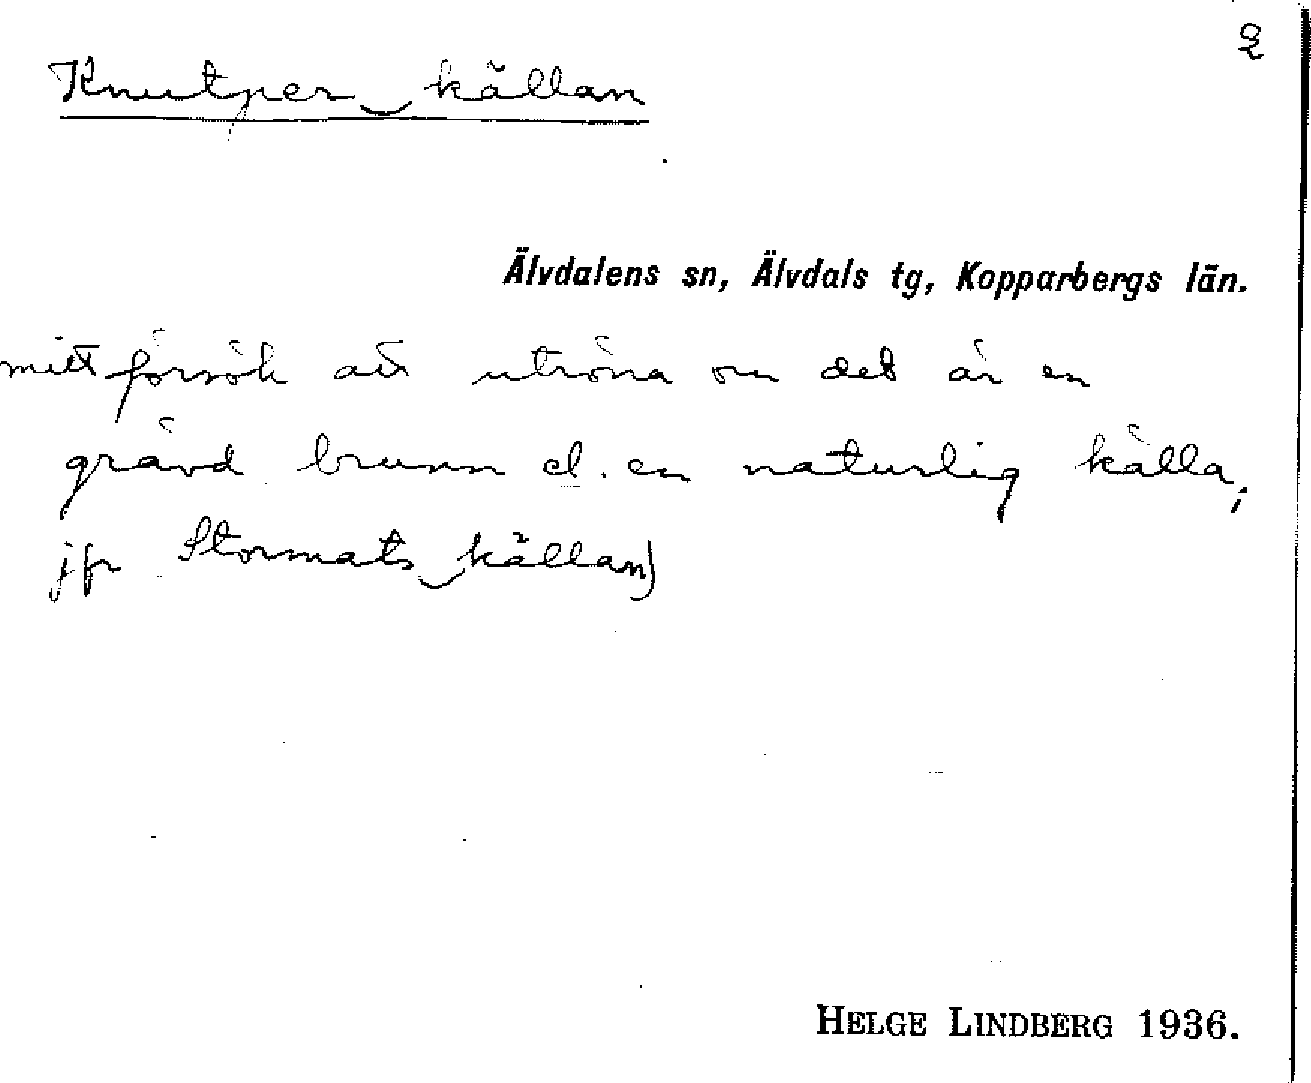 2
Knutper‿källan
Älvdalens sn, Älvdals tg, Kopparbergs län.
mitt försök att utröna om det är en
grävd brunn el. en naturlig källa;
jfr Stormats‿källan)
HELGE LINDBERG 1936.